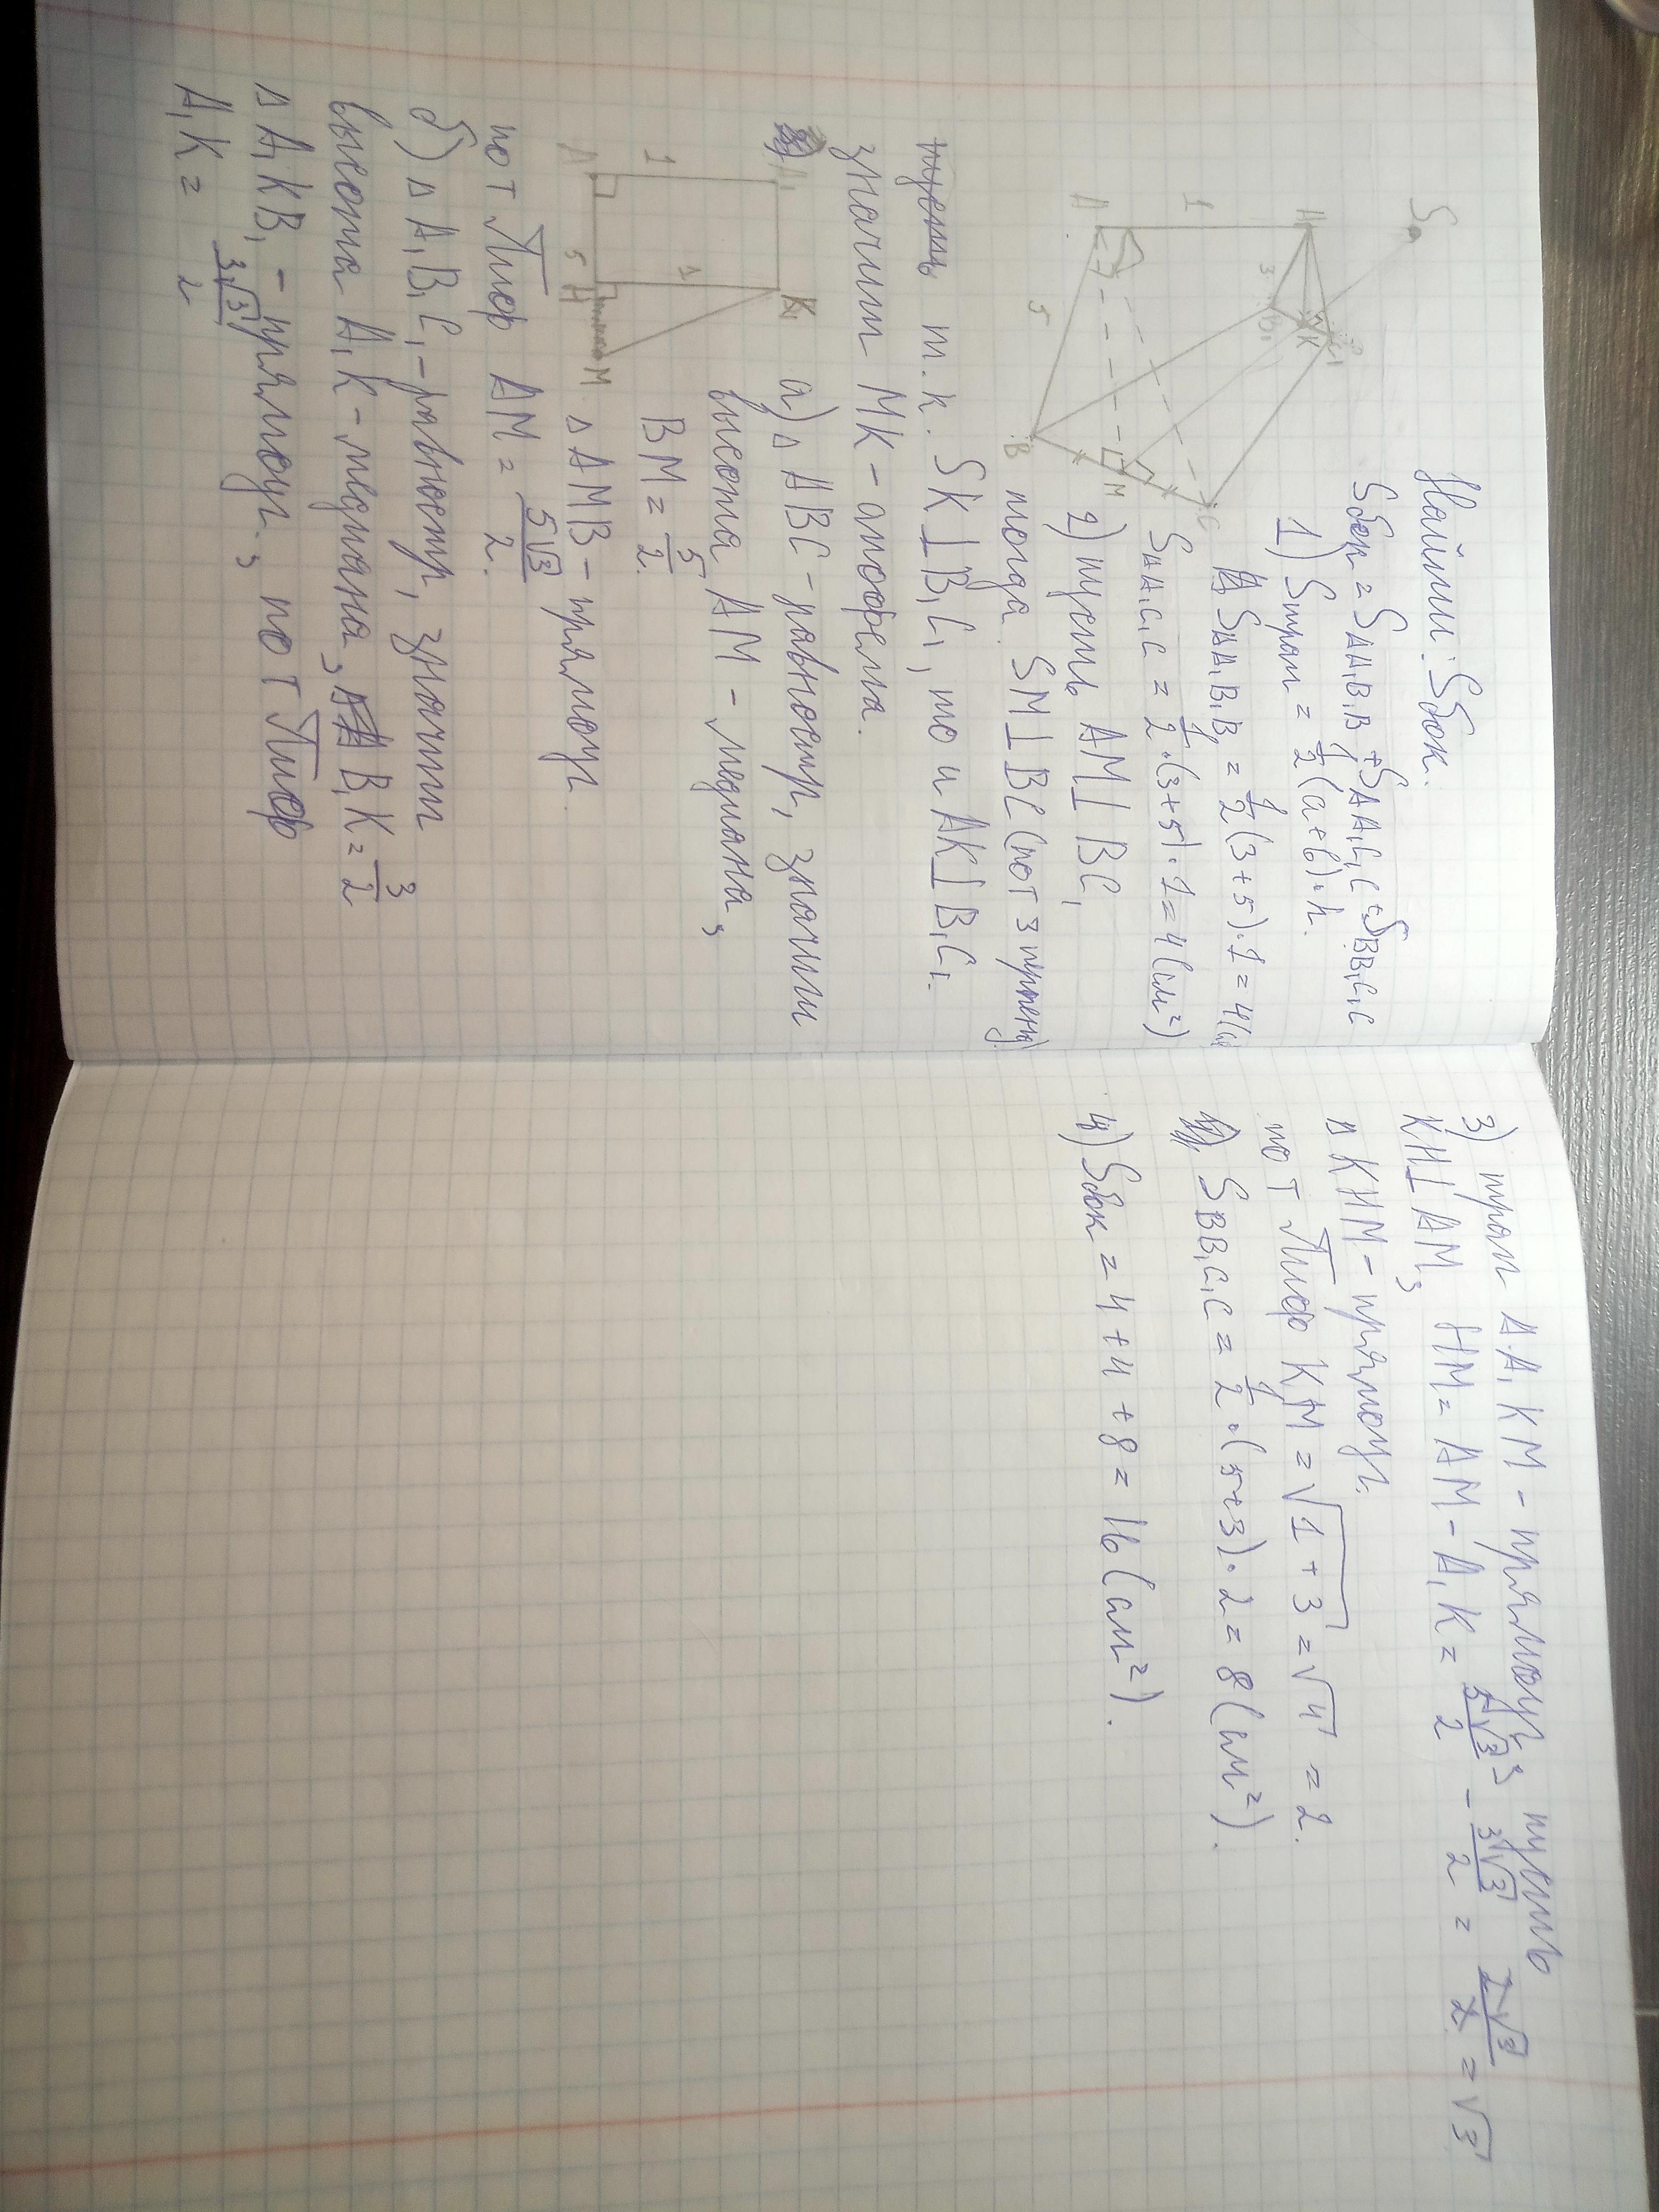 Найти: Sбок.
Sбок = SAA₁B₁B + SAA₁C₁C + SBB₁C₁C
1) Sтрап = 1/2 (a+b)·h.
SAA₁B₁B = 1/2 (3+5)·1 = 4 (см
SAA₁C₁C = 1/2 · (3+5)·1 = 4 (см²)
2) пусть AM ⊥ BC,
тогда SM ⊥ BC (по т 3 перпенд)
т.к. SK ⊥ B₁C₁, то и AK ⊥ B₁C₁.
значит MK – апофема.
а) ∆ ABC – равностор, значит
высота AM – медиана,
BM = 5/2.
∆ AMB – прямоуг.
по т Пиф AM = 5√3/2.
б) ∆ A₁B₁C₁ – равностр, значит
высота A₁K – медиана, B₁K = 3/2
∆ A₁KB₁ – прямоуг., по т Пиф
A₁K = 3√3/2
S
A₁
1
3
B₁
K
C₁
A
5
B
M
C
A₁
K
1
1
A
5
H
M
3) трап AA₁KM – прямоуг, пусть
KH ⊥ AM, HM = AM – A₁K = 5√3/2 – 3√3/2 = 2√3/2 = √3
∆ KHM – прямоуг.
по т Пиф KM = √1+3 = √4 = 2.
SBB₁C₁C = 1/2 · (5+3)·2 = 8 (см²).
4) Sбок = 4+4+8 = 16 (см²).